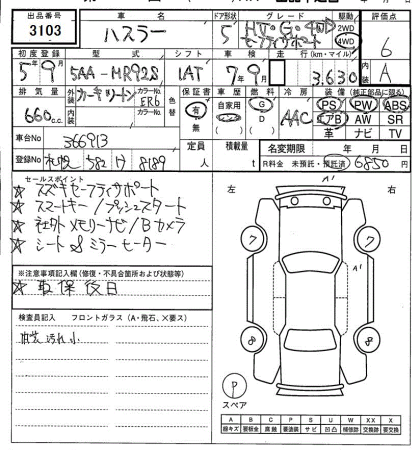 出品番号 車名 ドア形状 グレード 駆動 評価点
3103 ハスラー 5 HY・G・4WD 2WD 4WD 6
セーフティサポート
初度登録 型式 シフト 車検 走行(km・マイル) 内装
5年9月 5AA-MR92S IAT 7年9月 3,630 A
排気量 外装 カラーNo. 色替 保証書 車歴 燃料 冷房 (純正部品に限る)
660c.c. カーキツートン ER6 有・無 自家用 G D AAC PS PW ABS
エアB AW SR
革 ナビ TV
車台No 366913 定員 人 積載量 t 名変期限 年 月 日
登録No 札幌 582 8189 R料金 未預託・預託済 6850円
セールスポイント
☆ スズキセーフティサポート
☆ スマートキー/プッシュスタート
☆ 社外メモリーナビ/Bカメラ
☆ シート&ミラーヒーター
※注意事項記入欄(修復・不具合箇所および状態等)
☆ 取保後日
検査員記入 フロントガラス(A・飛石、×要ス)
内装汚れ小
左 右
A'
A'
7 7
8 8
P
スペア
A B C P S U W X XX
線キズ 要板金 腐蝕 要塗装 サビ 凹凸 補修跡 要交換 交換済